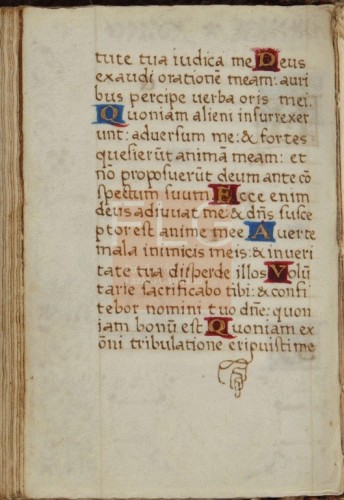 tute tua iudica me Deus
exaudi orationē meam: auri
bus percipe uerba oris mei.
Quoniam alieni insurrexer
unt: aduersum me: & fortes
quesierūt animā meam: et
nō proposuerūt deum ante cō
spectum suum Ecce enim
deus adiuuat me: & dn̄s susce
ptor est anime mee Auerte
mala inimicis meis: & in ueri
tate tua disperde illos Volū
tarie sacrificabo tibi: & confi
tebor nomini tuo dn̄e: quon
iam bonū est Quoniam ex
ōni tribulatione eripuisti me